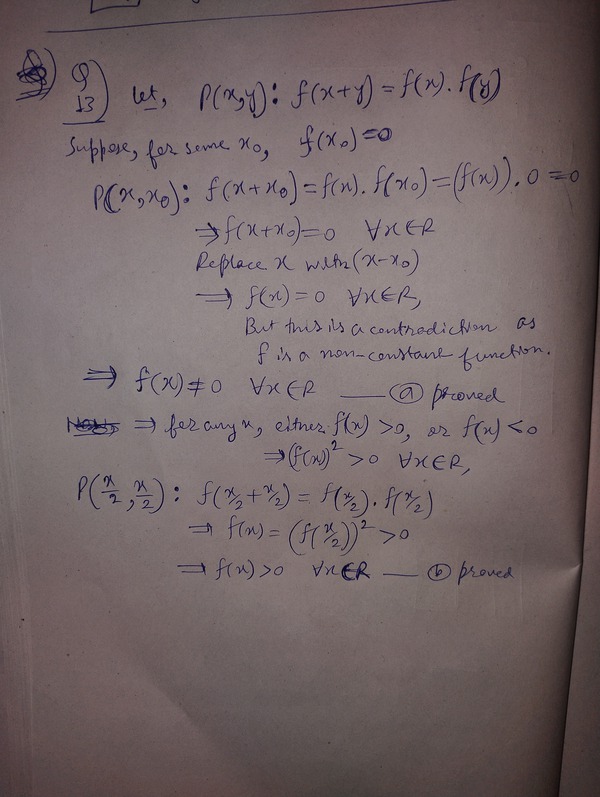 Q 13) Let, P(x,y): f(x+y) = f(x). f(y)
Suppose, for some x₀, f(x₀) = 0
P(x,x₀): f(x+x₀) = f(x). f(x₀) = (f(x)). 0 = 0
⇒ f(x+x₀) = 0 ∀x∈R
Replace x with (x-x₀)
⇒ f(x) = 0 ∀x∈R,
But this is a contradiction as
f is a non-constant function.
⇒ f(x) ≠ 0 ∀x∈R — ⓐ proved
⇒ for any x, either f(x) >0, or f(x) <0
⇒ (f(x))² > 0 ∀x∈R,
P(x/2, x/2): f(x/2 + x/2) = f(x/2). f(x/2)
⇒ f(x) = (f(x/2))² > 0
⇒ f(x) > 0 ∀x∈R — ⓑ proved